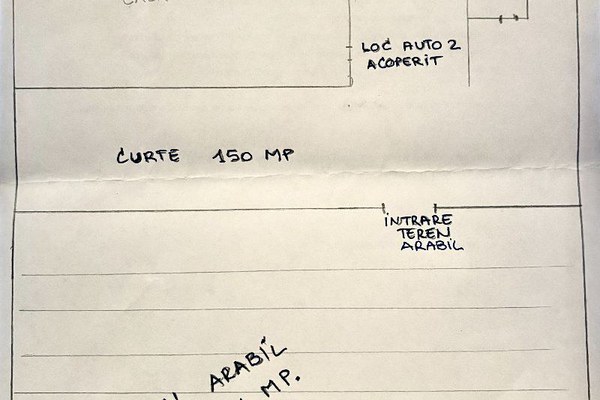 LOC AUTO 2
ACOPERIT
CURTE 150 MP
INTRARE
TEREN
ARABIL
ARABIL
MP.